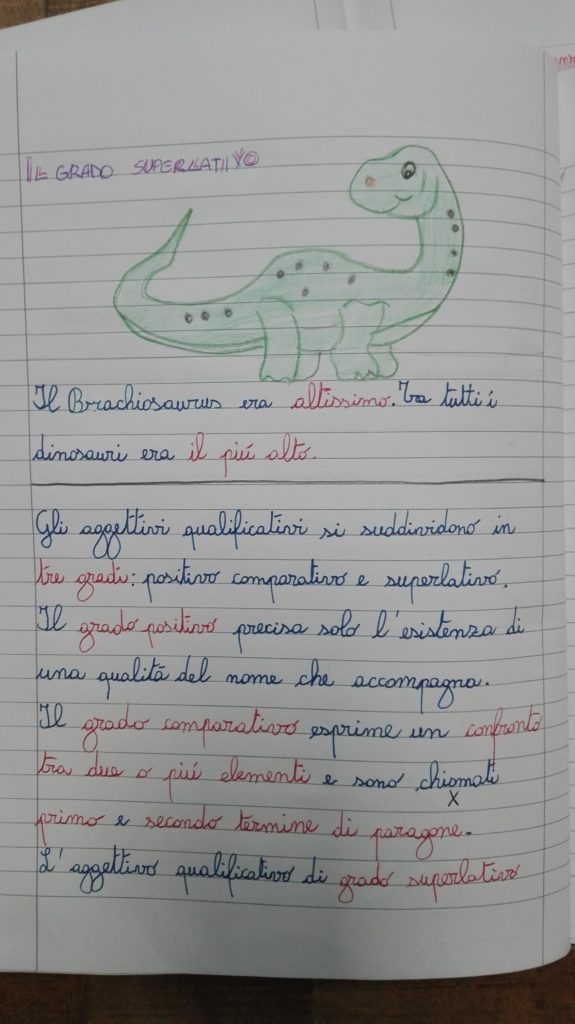 IL GRADO SUPERLATIVO
Il Brachiosaurus era altissimo. Tra tutti i
dinosauri era il piú alto.
Gli aggettivi qualificativi si suddividono in
tre gradi: positivo comparativo e superlativo.
Il grado positivo precisa solo l'esistenza di
una qualitá del nome che accompagna.
Il grado comparativo esprime un confronto
tra due o piú elementi e sono chiomati
x
primo e secondo termine di paragone.
L'aggettivo qualificativo di grado superlativo